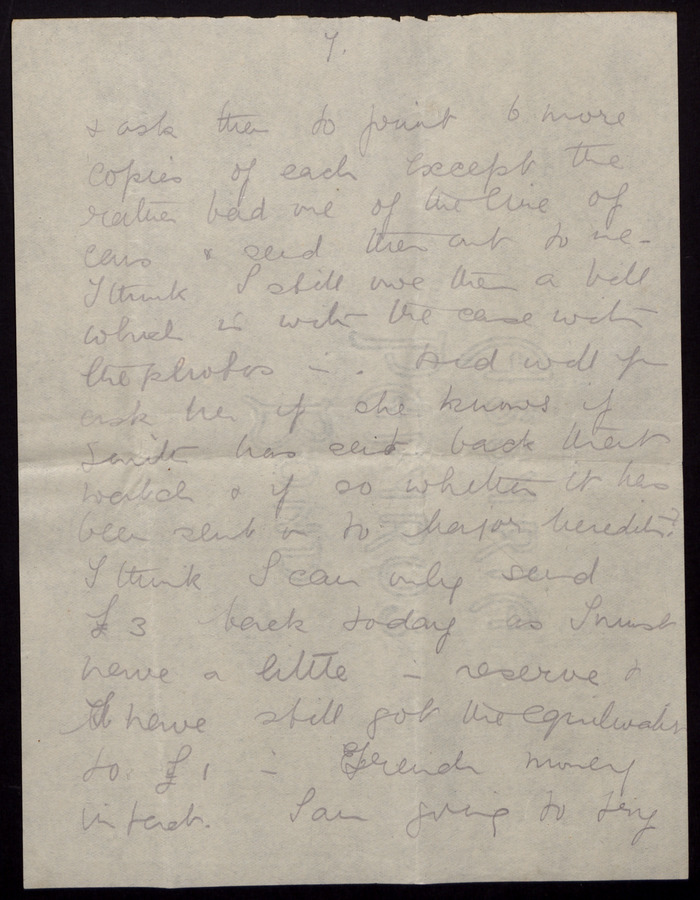 7.
& ask them to print 6 more
copies of each except the
rather bad one of the line of
cars & send them out to me -
I think I still owe them a bill
which is with the case with
the photos - . And will you
ask her if she knows if
Smith has sent back that
watch & if so whether it has
been sent on to Major Meredith?
I think I can only send
£3 back today as I must
have a little in reserve &
I have still got the equivalent
to £1 in French money
intact. I am going to try